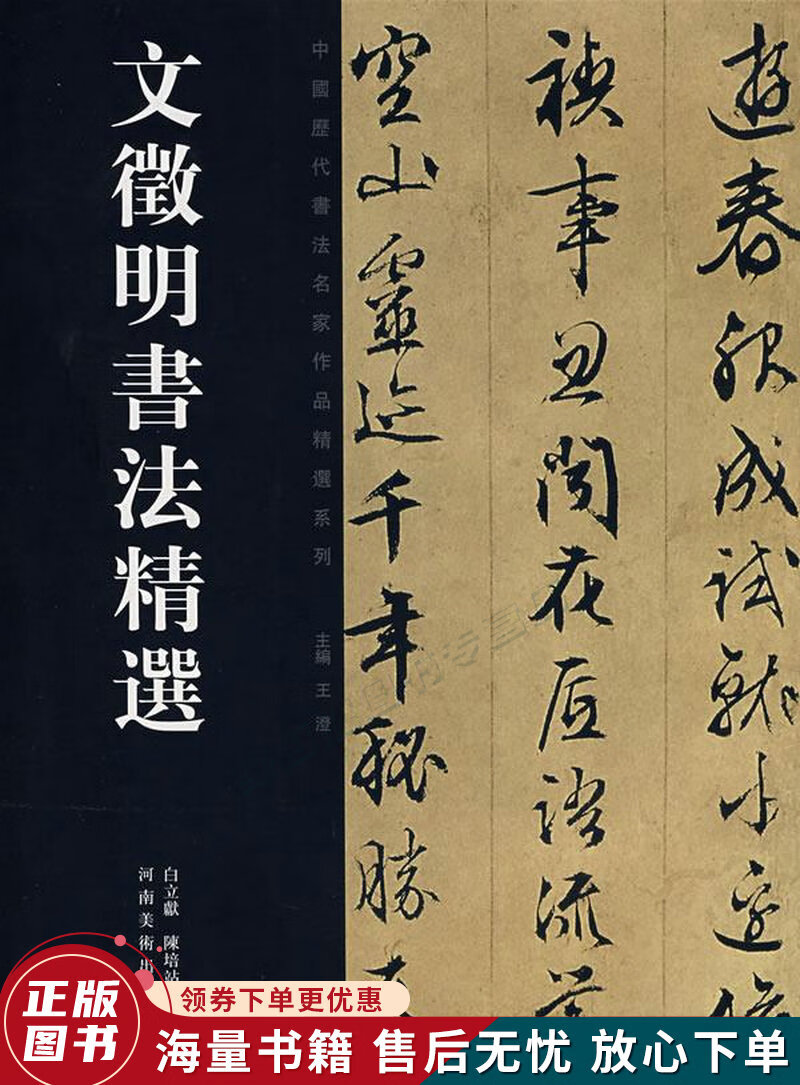 文徵明書法精選
中國歷代書法名家作品精選系列
主編 王澄
遊春服成試就水邊修
禊事忽聞花底語流
空山靈迹千年秘勝
白立獻 陳培站
河南美術出
正版
图书
领券下单更优惠
海量书籍 售后无忧 放心下单